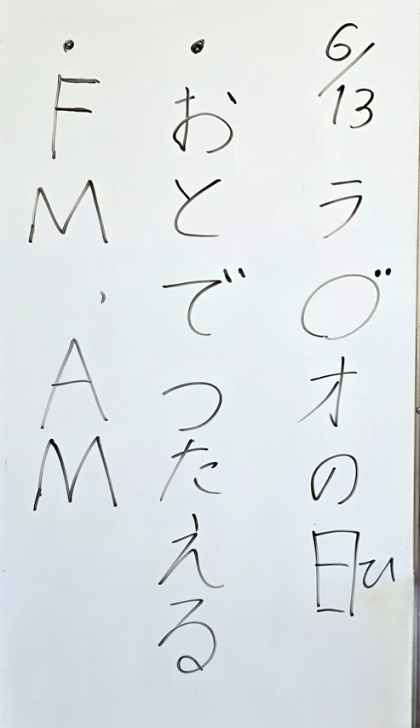 6/13 ラ〇゛オの日
ひ
・おとでつたえる
・FM、AM